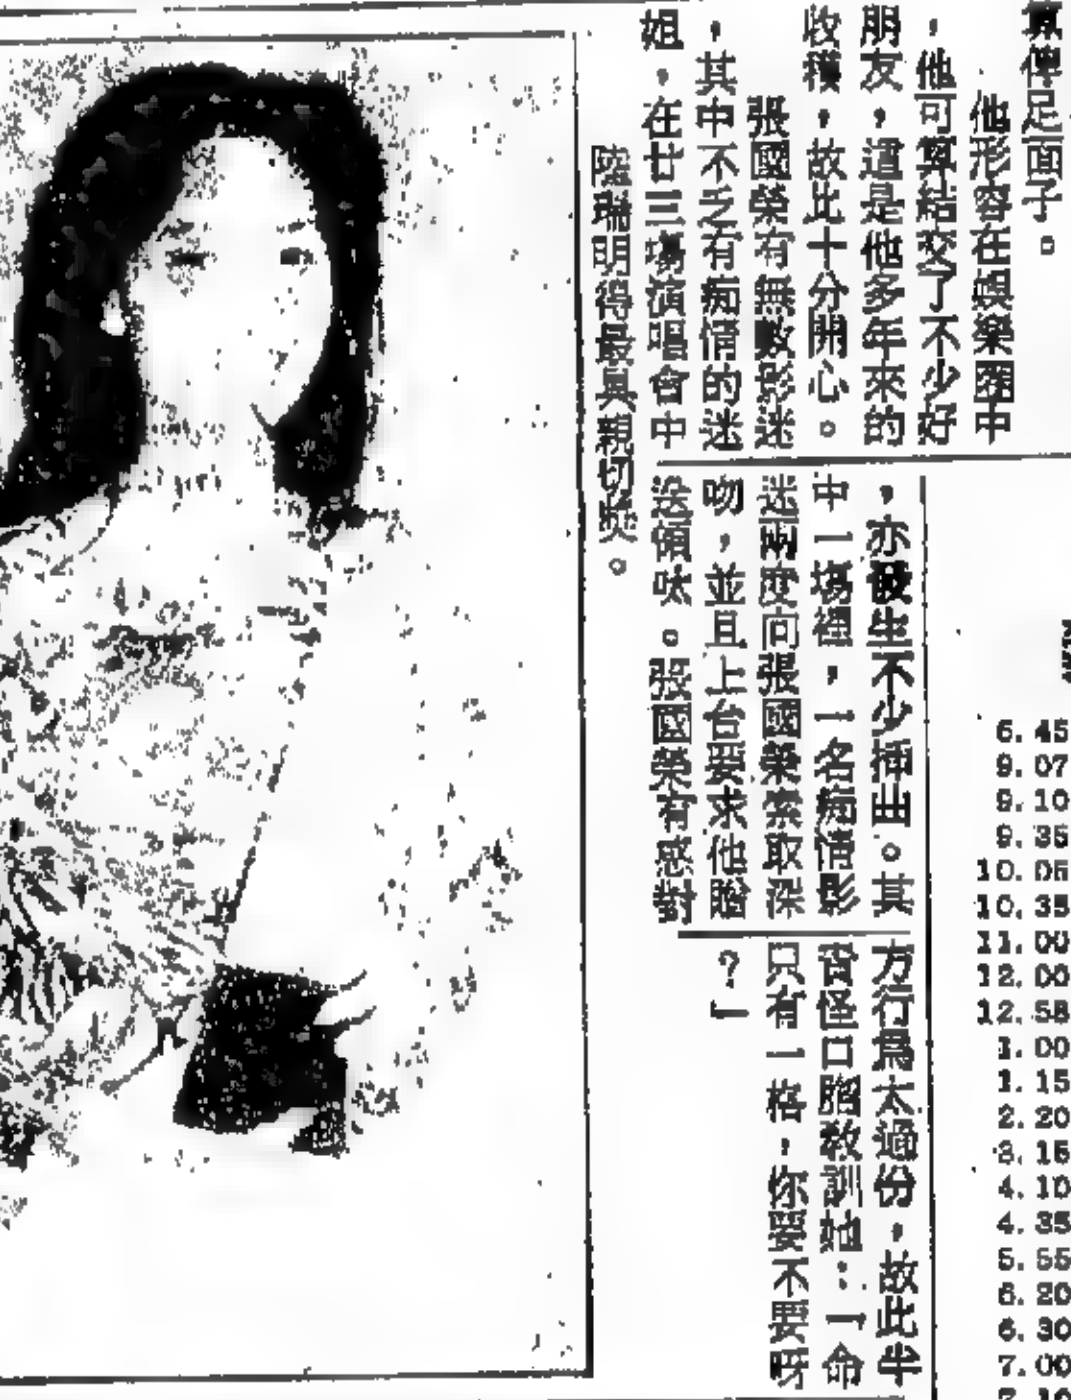 算俾足面子。
他形容在娛樂圈中
，他可算結交了不少好
朋友，這是他多年來的
收穫，故此十分開心。
張國榮有無數影迷
，其中不乏有痴情的迷
姐，在廿三場演唱會中
，亦發生不少揷出。其
中一場裡，一名痴情影
迷兩度向張國榮索取深
吻，並且上台要求他贈
送領呔。張國榮有感對
方行爲太過份，故此半
害怪口脗敎訓她：一命
只有一格，你要不要呀
？」
陸瑞明得最具親切感。
6.45
9.07
9.10
9.35
10.05
10.35
11.00
12.00
12.58
1.00
1.15
2.20
3.15
4.10
4.35
5.55
6.20
6.30
7.00